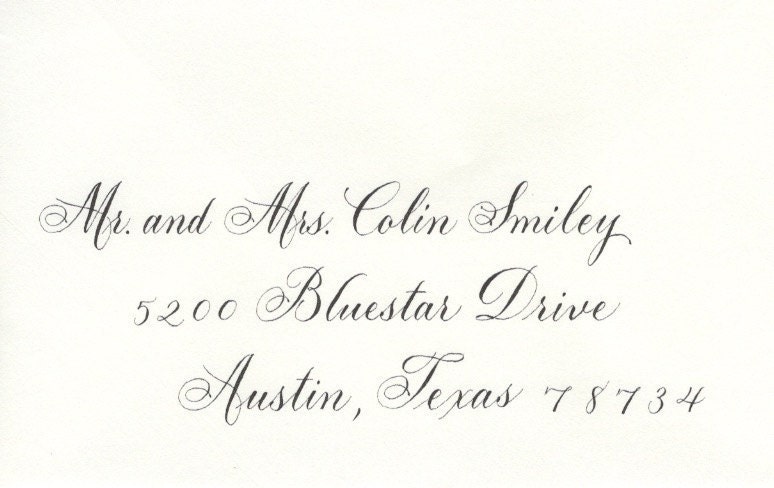 Mr. and Mrs. Colin Smiley
5200 Bluestar Drive
Austin, Texas 78734